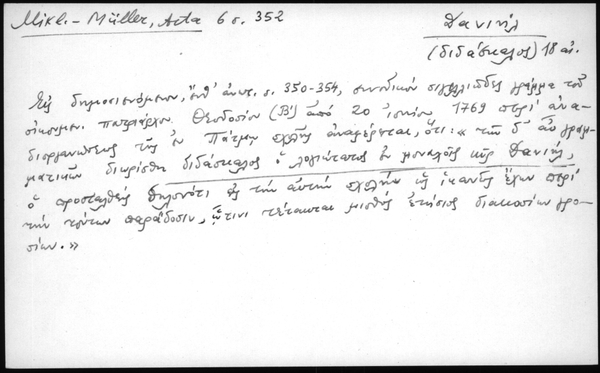 Mikl.- Müller, Acta 6 σ. 352
Δανιήλ
(διδάσκαλος) 18 αἰ.
Εἰς δημοσιευόμενον, ἔνθ' ἀνωτ. σ. 350-354, συνοδικὸν σιγιλλιῶδες γράμμα τοῦ
οἰκουμεν. πατριάρχου Θεοδοσίου (Β') ἀπὸ 20 ἰουνίου 1769 περὶ ἀνα-
διοργανώσεως τῆς ἐν Πάτμῳ σχολῆς ἀναφέρεται, ὅτι: « τῶν δ' αὖ γραμ-
ματικῶν διωρίσθη διδάσκαλος ὁ λογιώτατος ἐν μοναχοῖς κὺρ Δανιήλ,
ὁ προσταχθεὶς δηλονότι εἰς τὴν αὐτὴν σχολὴν ὡς ἱκανῶς ἔχων περὶ
τὴν τούτων παράδοσιν, ᾧτινι τέτακται μισθὸς ἐτήσιος διακοσίων γρο-
σίων. »